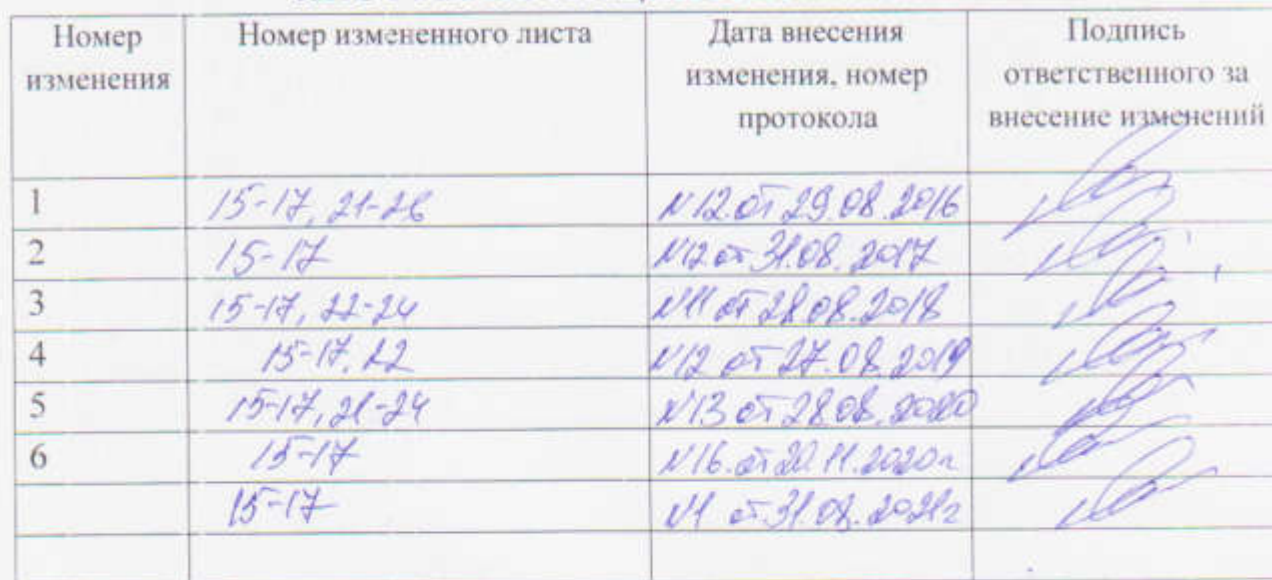 Номер изменения Номер измененного листа Дата внесения изменения, номер протокола Подпись ответственного за внесение изменений
1 15-17, 21-26 N12 от 29.08.2016
2 15-17 N12 от 31.08.2017
3 15-17, 22-24 N11 от 28.08.2018
4 15-17, 22 N12 от 27.08.2019
5 15-17, 21-24 N13 от 28.08.2020
6 15-17 N16. от 20.11.2020г
15-17 N1 от 31.08.2021г